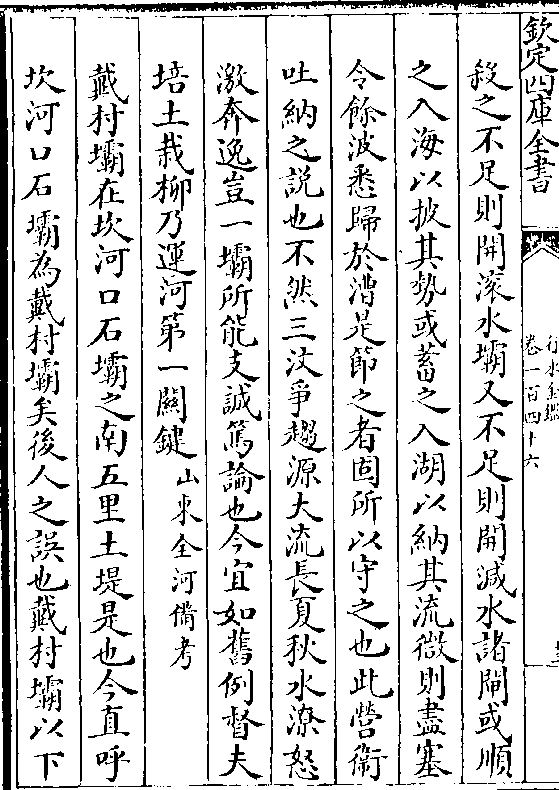 欽定四庫全書
行水金鑑
卷一百四十六
殺之不足則開滾水壩又不足則開減水諸閘或順
之入海以披其勢或蓄之入湖以納其流微則盡塞
令餘波悉歸於漕是節之者固所以守之也此營衛
吐納之說也不然三汶爭趨源大流長夏秋水潦怒
激奔逸豈一壩所能支誠篤論也今宜如舊例督夫
培土栽柳乃運河第一關鍵山東全河備考
戴村壩在坎河口石壩之南五里土堤是也今直呼
坎河口石壩為戴村壩矣後人之誤也戴村壩以下